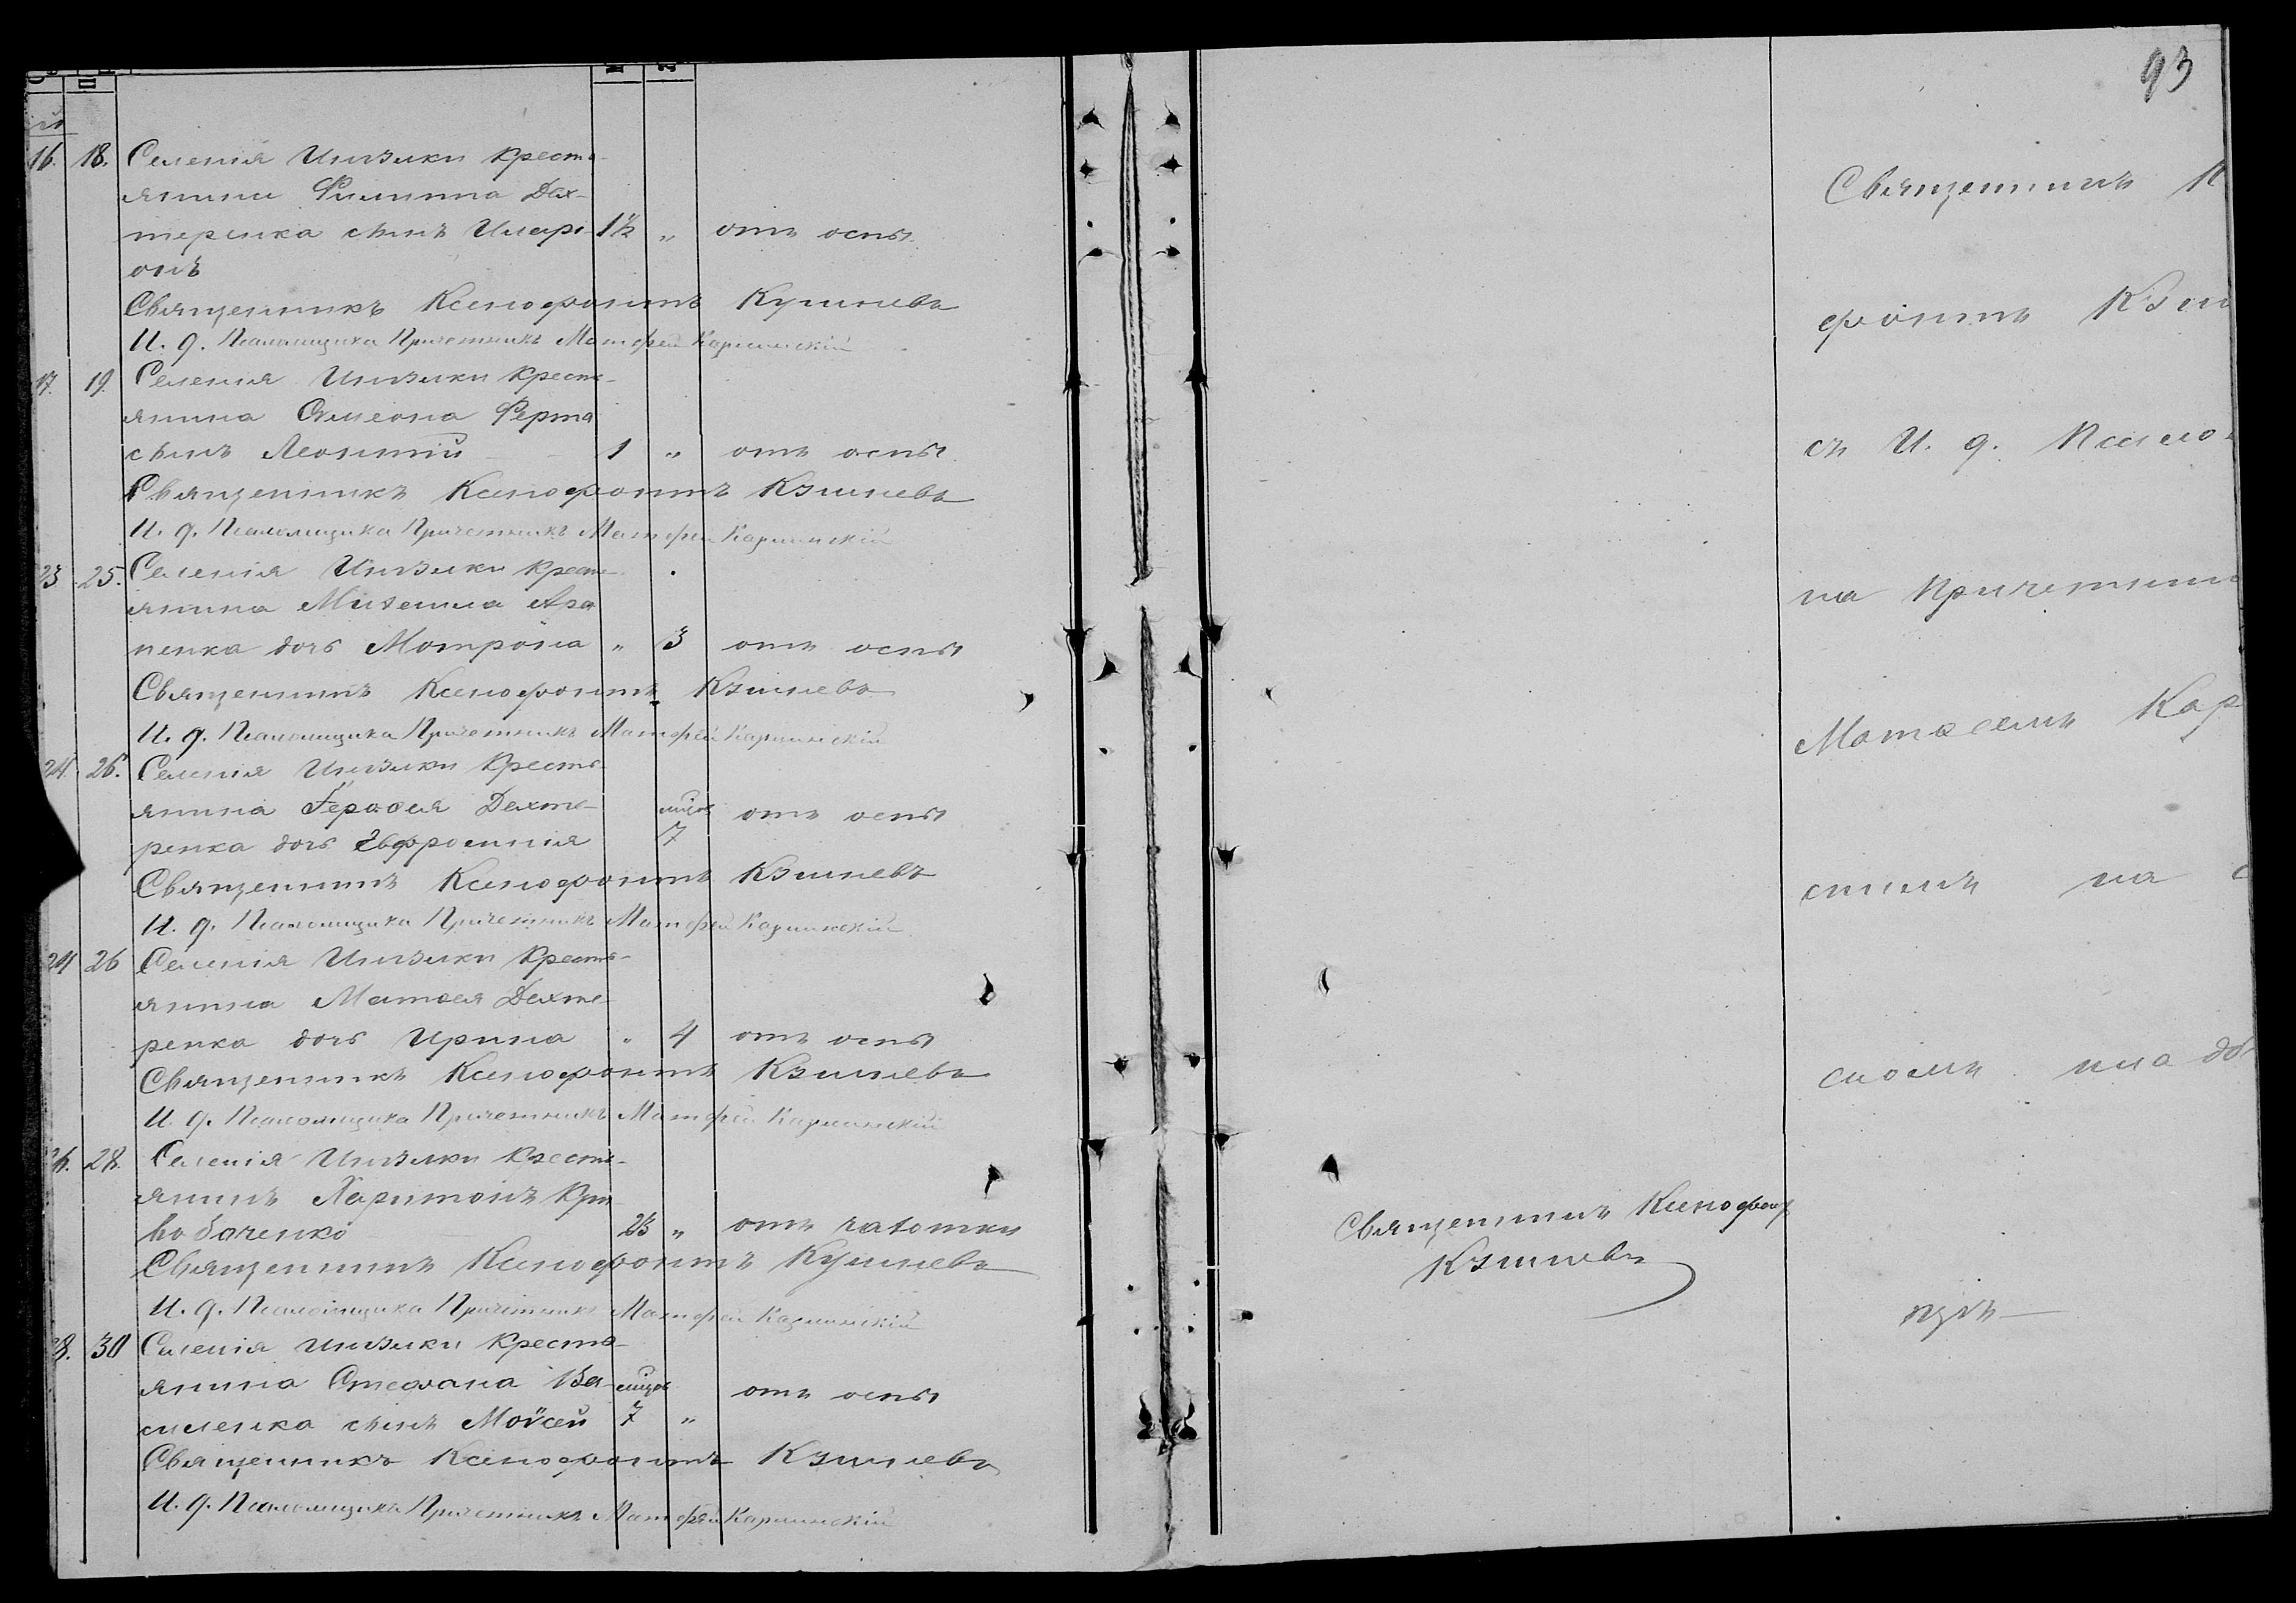 93
16. 18. Селенія Инзилки кресть-
янина Филиппа Дех-
теренка сынъ Иларі- 1½ „ отъ оспы
онъ
Священникъ Ксенофонтъ Кушневъ
И. д. Псаломщика Причетникъ Матфей Карминскій
17. 19. Селенія Инзилки кресть-
янина Симеона Ферта
сынъ Леонтій 1 „ отъ оспы
Священникъ Ксенофонтъ Кушневъ
И. д. Псаломщика Причетникъ Матфей Карминскій
23 25. Селенія Инзилки кресть-
янина Михаила Ара
пенка дочь Матрона „ 3 отъ оспы
Священникъ Ксенофонтъ Кушневъ
И. д. Псаломщика Причетникъ Матфей Карминскій
24. 26. Селенія Инзилки кресть-
янина Герасия Дехте-
ренка дочь Евфросинія 7 отъ оспы
Священникъ Ксенофонтъ Кушневъ
И. д. Псаломщика Причетникъ Матфей Карминскій
24 26 Селенія Инзилки кресть-
янина Матвея Дехте-
ренка дочь Ирина „ 4 отъ оспы
Священникъ Ксенофонтъ Кушневъ
И. д. Псаломщика Причетникъ Матфей Карминскій
26. 28. Селенія Инзилки кресть-
янинъ Харитонъ Кри
вобоченко „ отъ чахотки
Священникъ Ксенофонтъ Кушневъ
И. д. Псаломщика Причетникъ Матфей Карминскій
28. 30 Селенія Инзилки кресть-
янина Стефана Ва-
силенка сынъ Моисей 7 „ отъ оспы
Священникъ Ксенофонтъ Кушневъ
И. д. Псаломщика Причетникъ Матфей Карминскій
Священникъ Ксенофонт
Кушневъ
Священникъ К
фонтъ Куш
съ И. д. Псало
на Причетник
Матвеемъ Кар